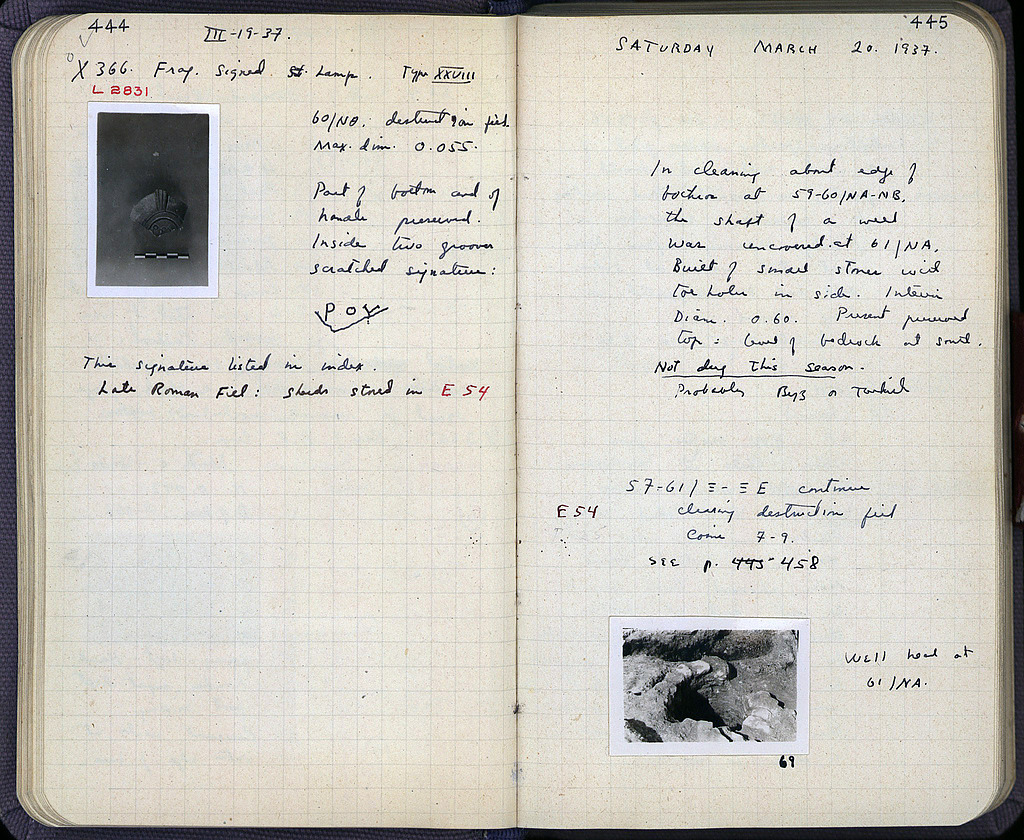 444
III-19-37.
X 366. Frag. Signed Lamp. Type XXVIII
L 2831
60/NB. destruction fill.
Max. dim. 0.055.
Part of bottom and of
handle preserved.
Inside two grooves
scratched signature:
ΡΟΥ
This signature listed in index.
Late Roman Fill: sherds stored in E 54
445
SATURDAY MARCH 20. 1937.
In cleaning about edge of
bothros at 59-60/NA-NB.
the shaft of a well
was uncovered at 61/NA.
Built of small stones with
toe holes in side. Interior
Diam. 0.60. Present preserved
top = level of bedrock at south.
Not dug this season.
Probably Byz or Turkish
57-61/Ξ-ΞE continue
E 54 clearing destruction fill
Coins 7-9.
SEE p. 445 458
Well head at
61/NA.
69